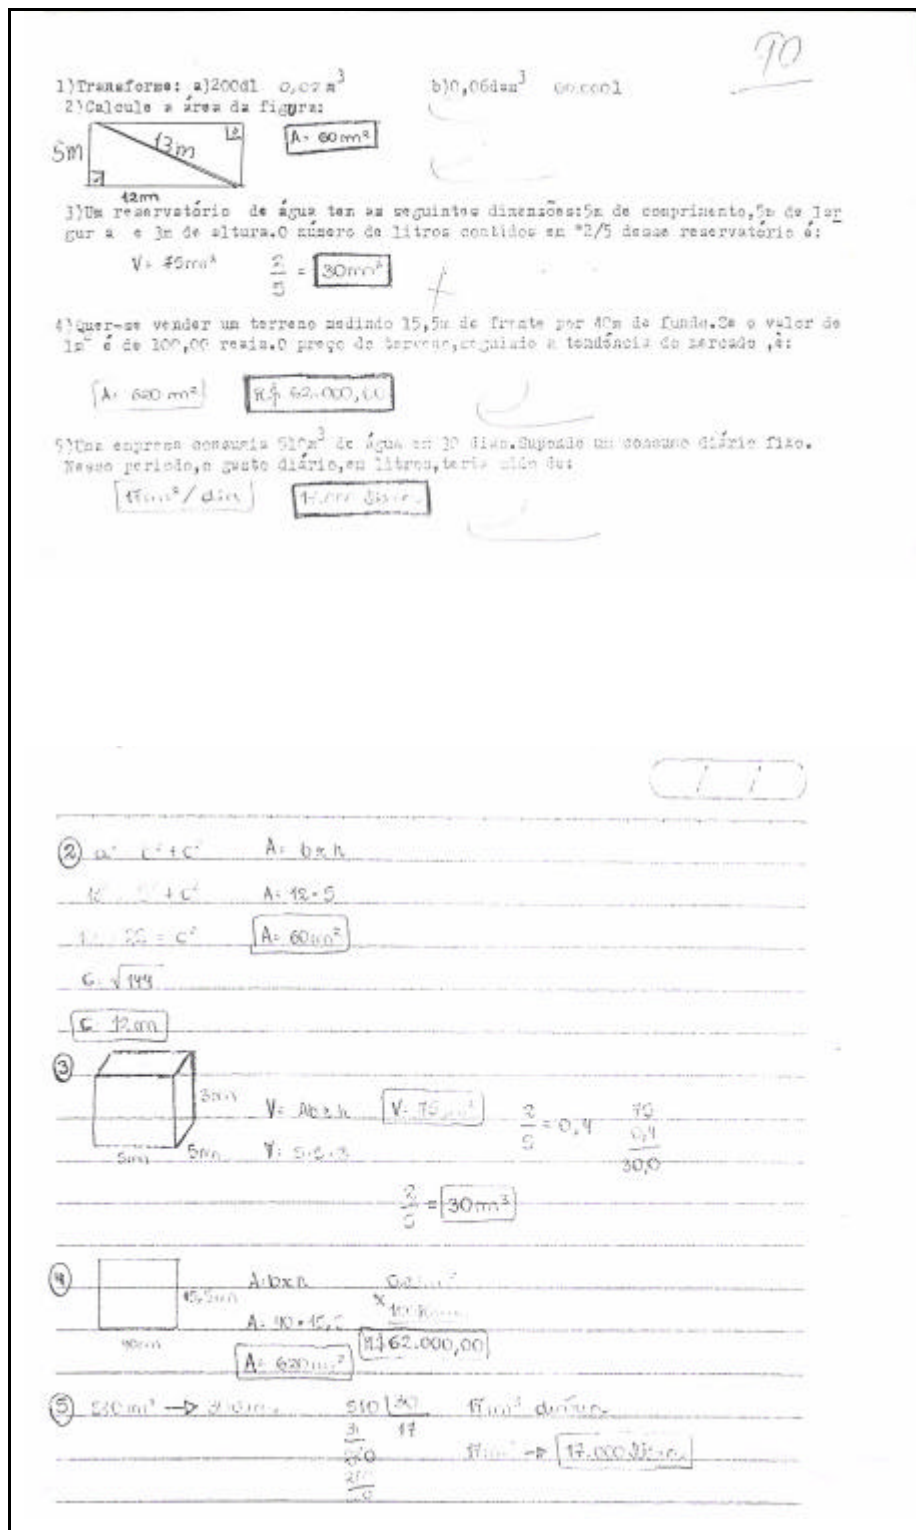 10
1)Transforme: a)200dl 0,02 m³ b)0,06dam³ 60.000l
2)Calcule a área da figura:
5m 13m A= 60m²
12m
3)Um reservatório de água tem as seguintes dimensões:5m de comprimento,5m de lar
gur a e 3m de altura.O número de litros contidos em "2/5 desse reservatório é:
V= 75m³ 2/5 = 30m³
4)Quer-se vender um terreno medindo 15,5m de frente por 40m de fundo.Se o valor do
1m² é de 100,00 reais.O preço do terreno,seguindo a tendência do mercado ,é:
A= 620 m² R$ 62.000,00
5)Uma empresa consumia 510m³ de água em 30 dias.Supondo um consumo diário fixo.
Nesse período,o gasto diário,em litros,teria sido de:
17m³/dia 17.000 litros
2 a² c²+c² A= b×h
+c² A= 12·5
= c² A= 60m²
c= √144
c= 12m
3 3m V= Ab×h V= 75m³ 2/5 = 0,4 75
5m 5m V= 5·5·3 0,4
30,0
2/5 = 30m³
4 15,5m A=b×h
40m A= 40·15,5 ×
A= 620m² R$62.000,00
5 510m³ 510 30 17m³ diários
17
17m³ 17.000 litros